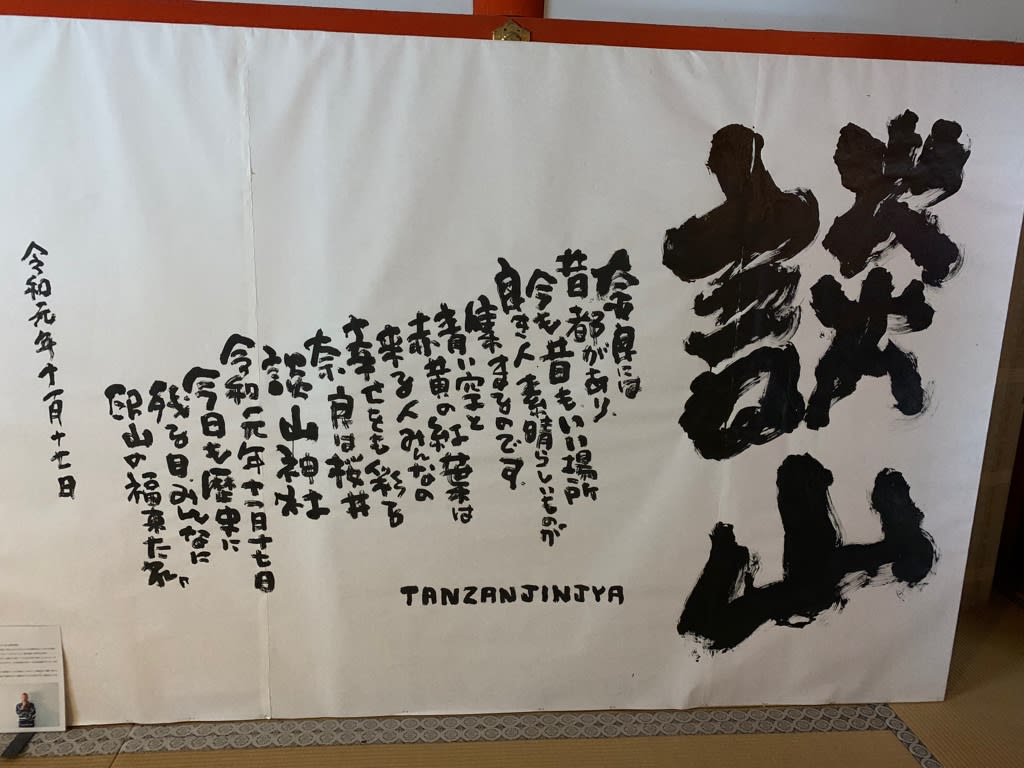 談山
奈良には
昔都があり、
今も昔もいい場所
良き人素晴らしいものが
集まるのです。
青い空と
赤黄の紅葉は
来る人みんなの
幸せをも彩る
奈良は桜井
談山神社
令和元年十一月十七日
今日も歴史に
残る日みんなに
山の福来たれ
TANZANJINJYA
令和元年十一月十七日